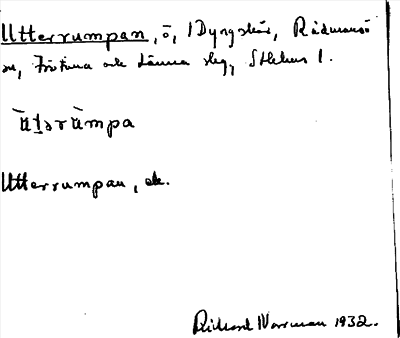 Utterrumpan, ö, i Dyngskär, Rådmansö
sn, Frötuna och Länna slg, Sthlms l.
ùtərùmpa
Utterrumpan, ek.
Richard Norrman 1932.